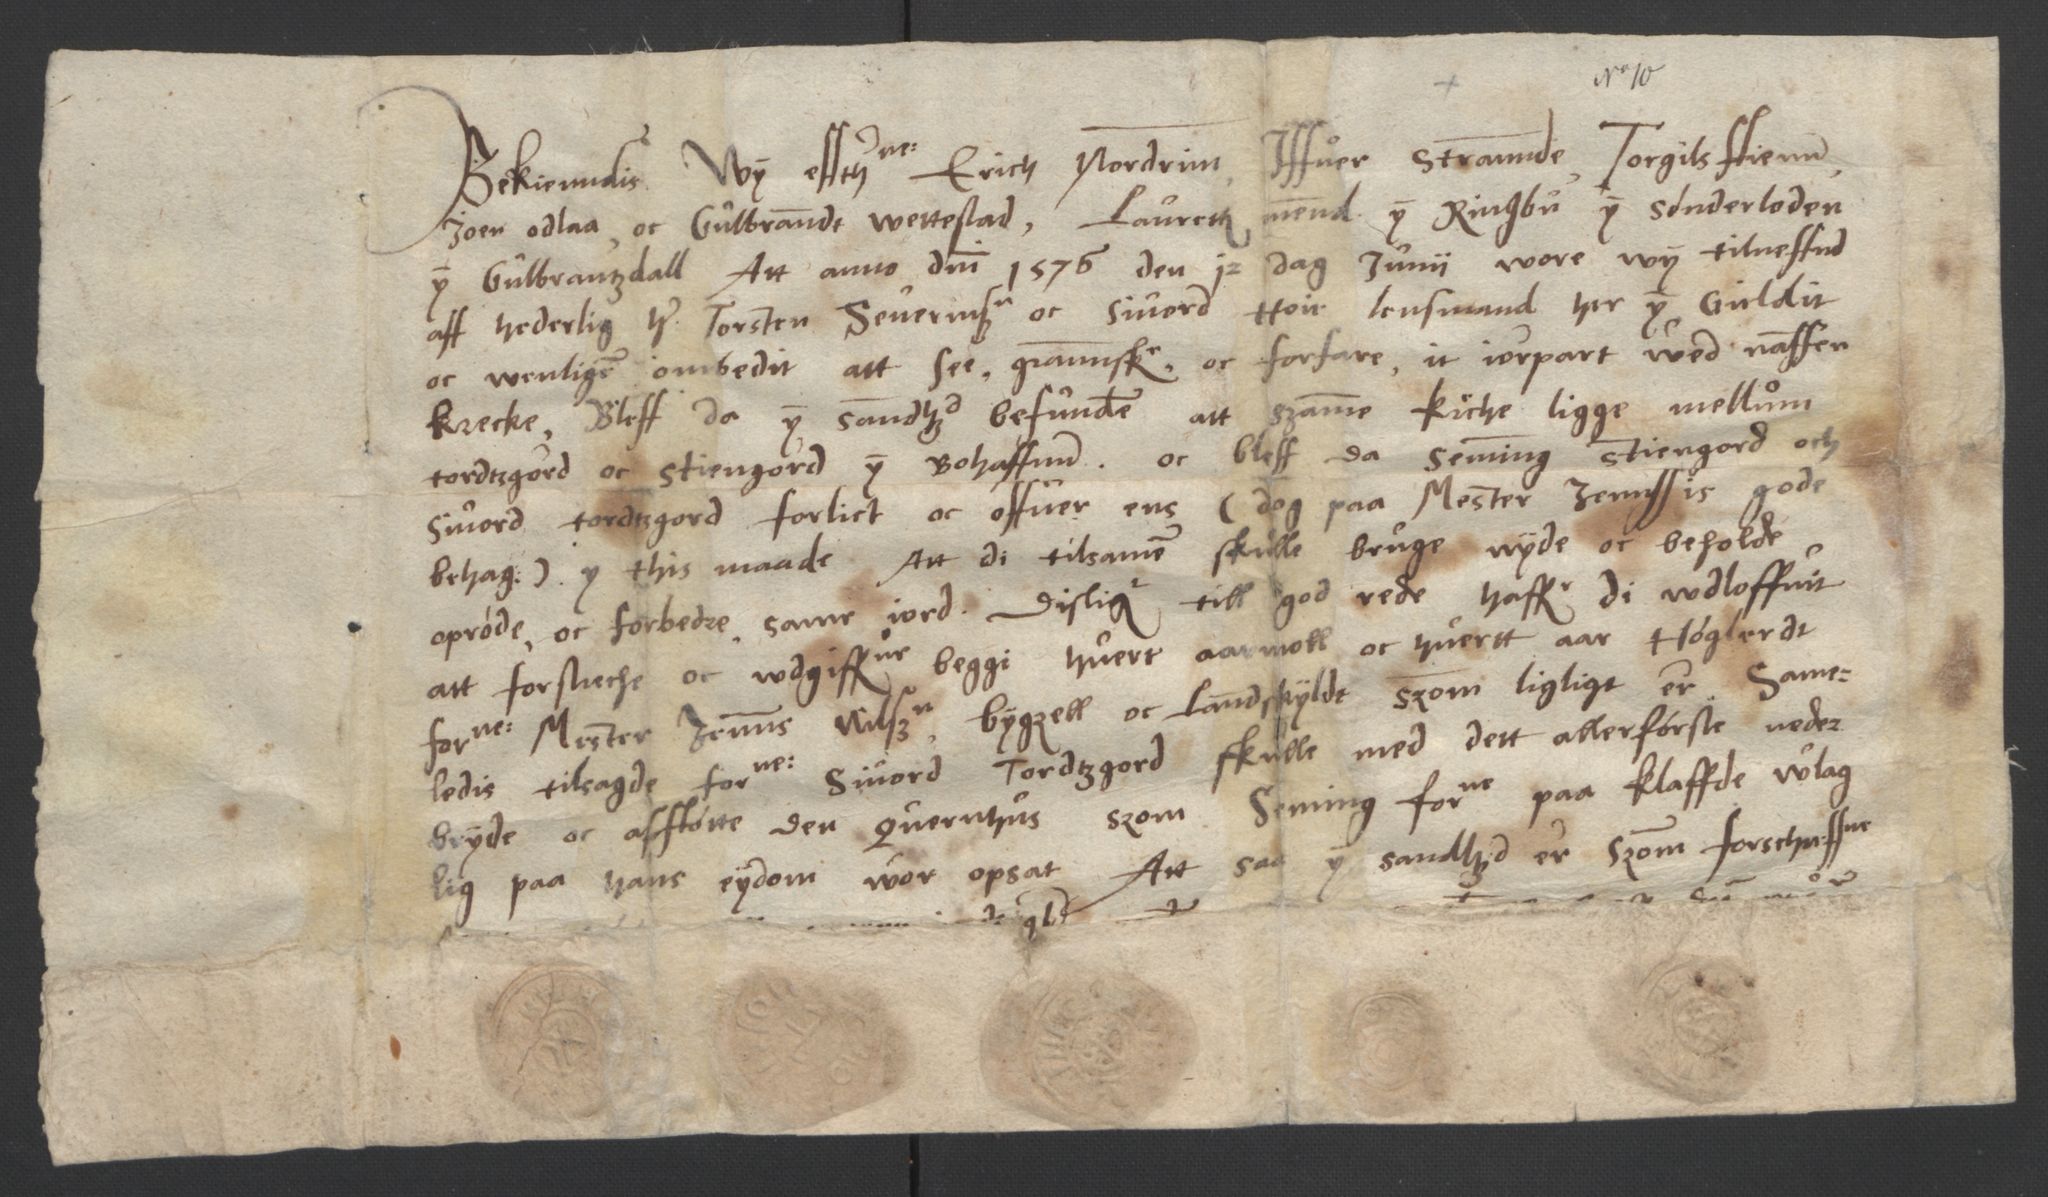 No 10
Bekienndis Wÿ effthne: Erich Nordrim, Iffuer Strannde, Torgils stienn,
Joen odlaa, oc Gulbrandt wettestad, Laurettis mend ÿ Ringbu ÿ Sönderloden
ÿ Gulbrantzdall Att anno dni 1576 den 12 dag Junii wore wÿ tilneffnd
aff hederlig her Torsten Seuerinßn oc Siuord lensmand her ÿ Gieldit
oc wenligen ombedit att see, grannske, oc forfare, it iorpart wed naffen
krecke, Bleff da ÿ sandhed befunden att szamme kriche ligge mellum
tordtzgord oc Stiengord ÿ Bohaffnn. oc bleff da Seming Stiengord och
Siuord tordtzgord forlict oc offuer ens (dog paa Mester Jenssis gode
behag:). ÿ this maade Att di tilsamen skulle bruge wÿde oc beholde
opröde, oc forbedre same iord. Disligr till god rede haffr di wdloffuit
att forstreche oc wdgiffue beggi huert aarmoll oc huertt aar Höglerdt
forne: Mester Jenns Nilßn, bÿgzell oc Landskÿldt szom ligligt er. Same-
ledis tilsagde forne: Siuord Tordtzgord skulle med dett allerförste neder
brÿde oc affflötte den Quernhus szom Seming forne paa klaffde wlag
lig paa hans eÿdom wor opsat Att saa ÿ sandhed er szom forschreffne